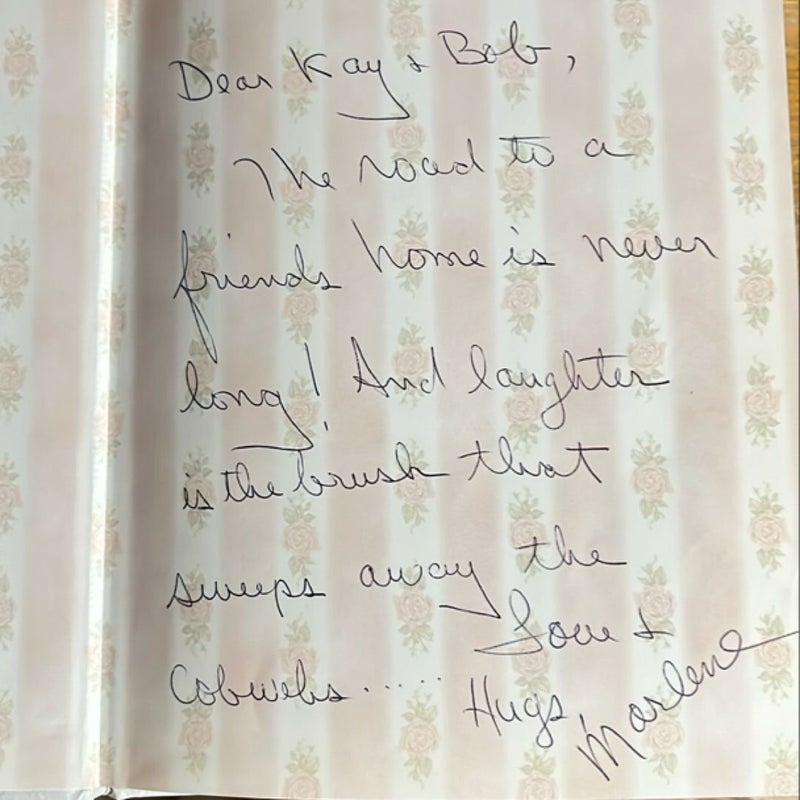 Dear Kay & Bob,
The road to a
friends home is never
long! And laughter
is the brush that
sweeps away the
Cobwebs......
Love &
Hugs,
Marlene